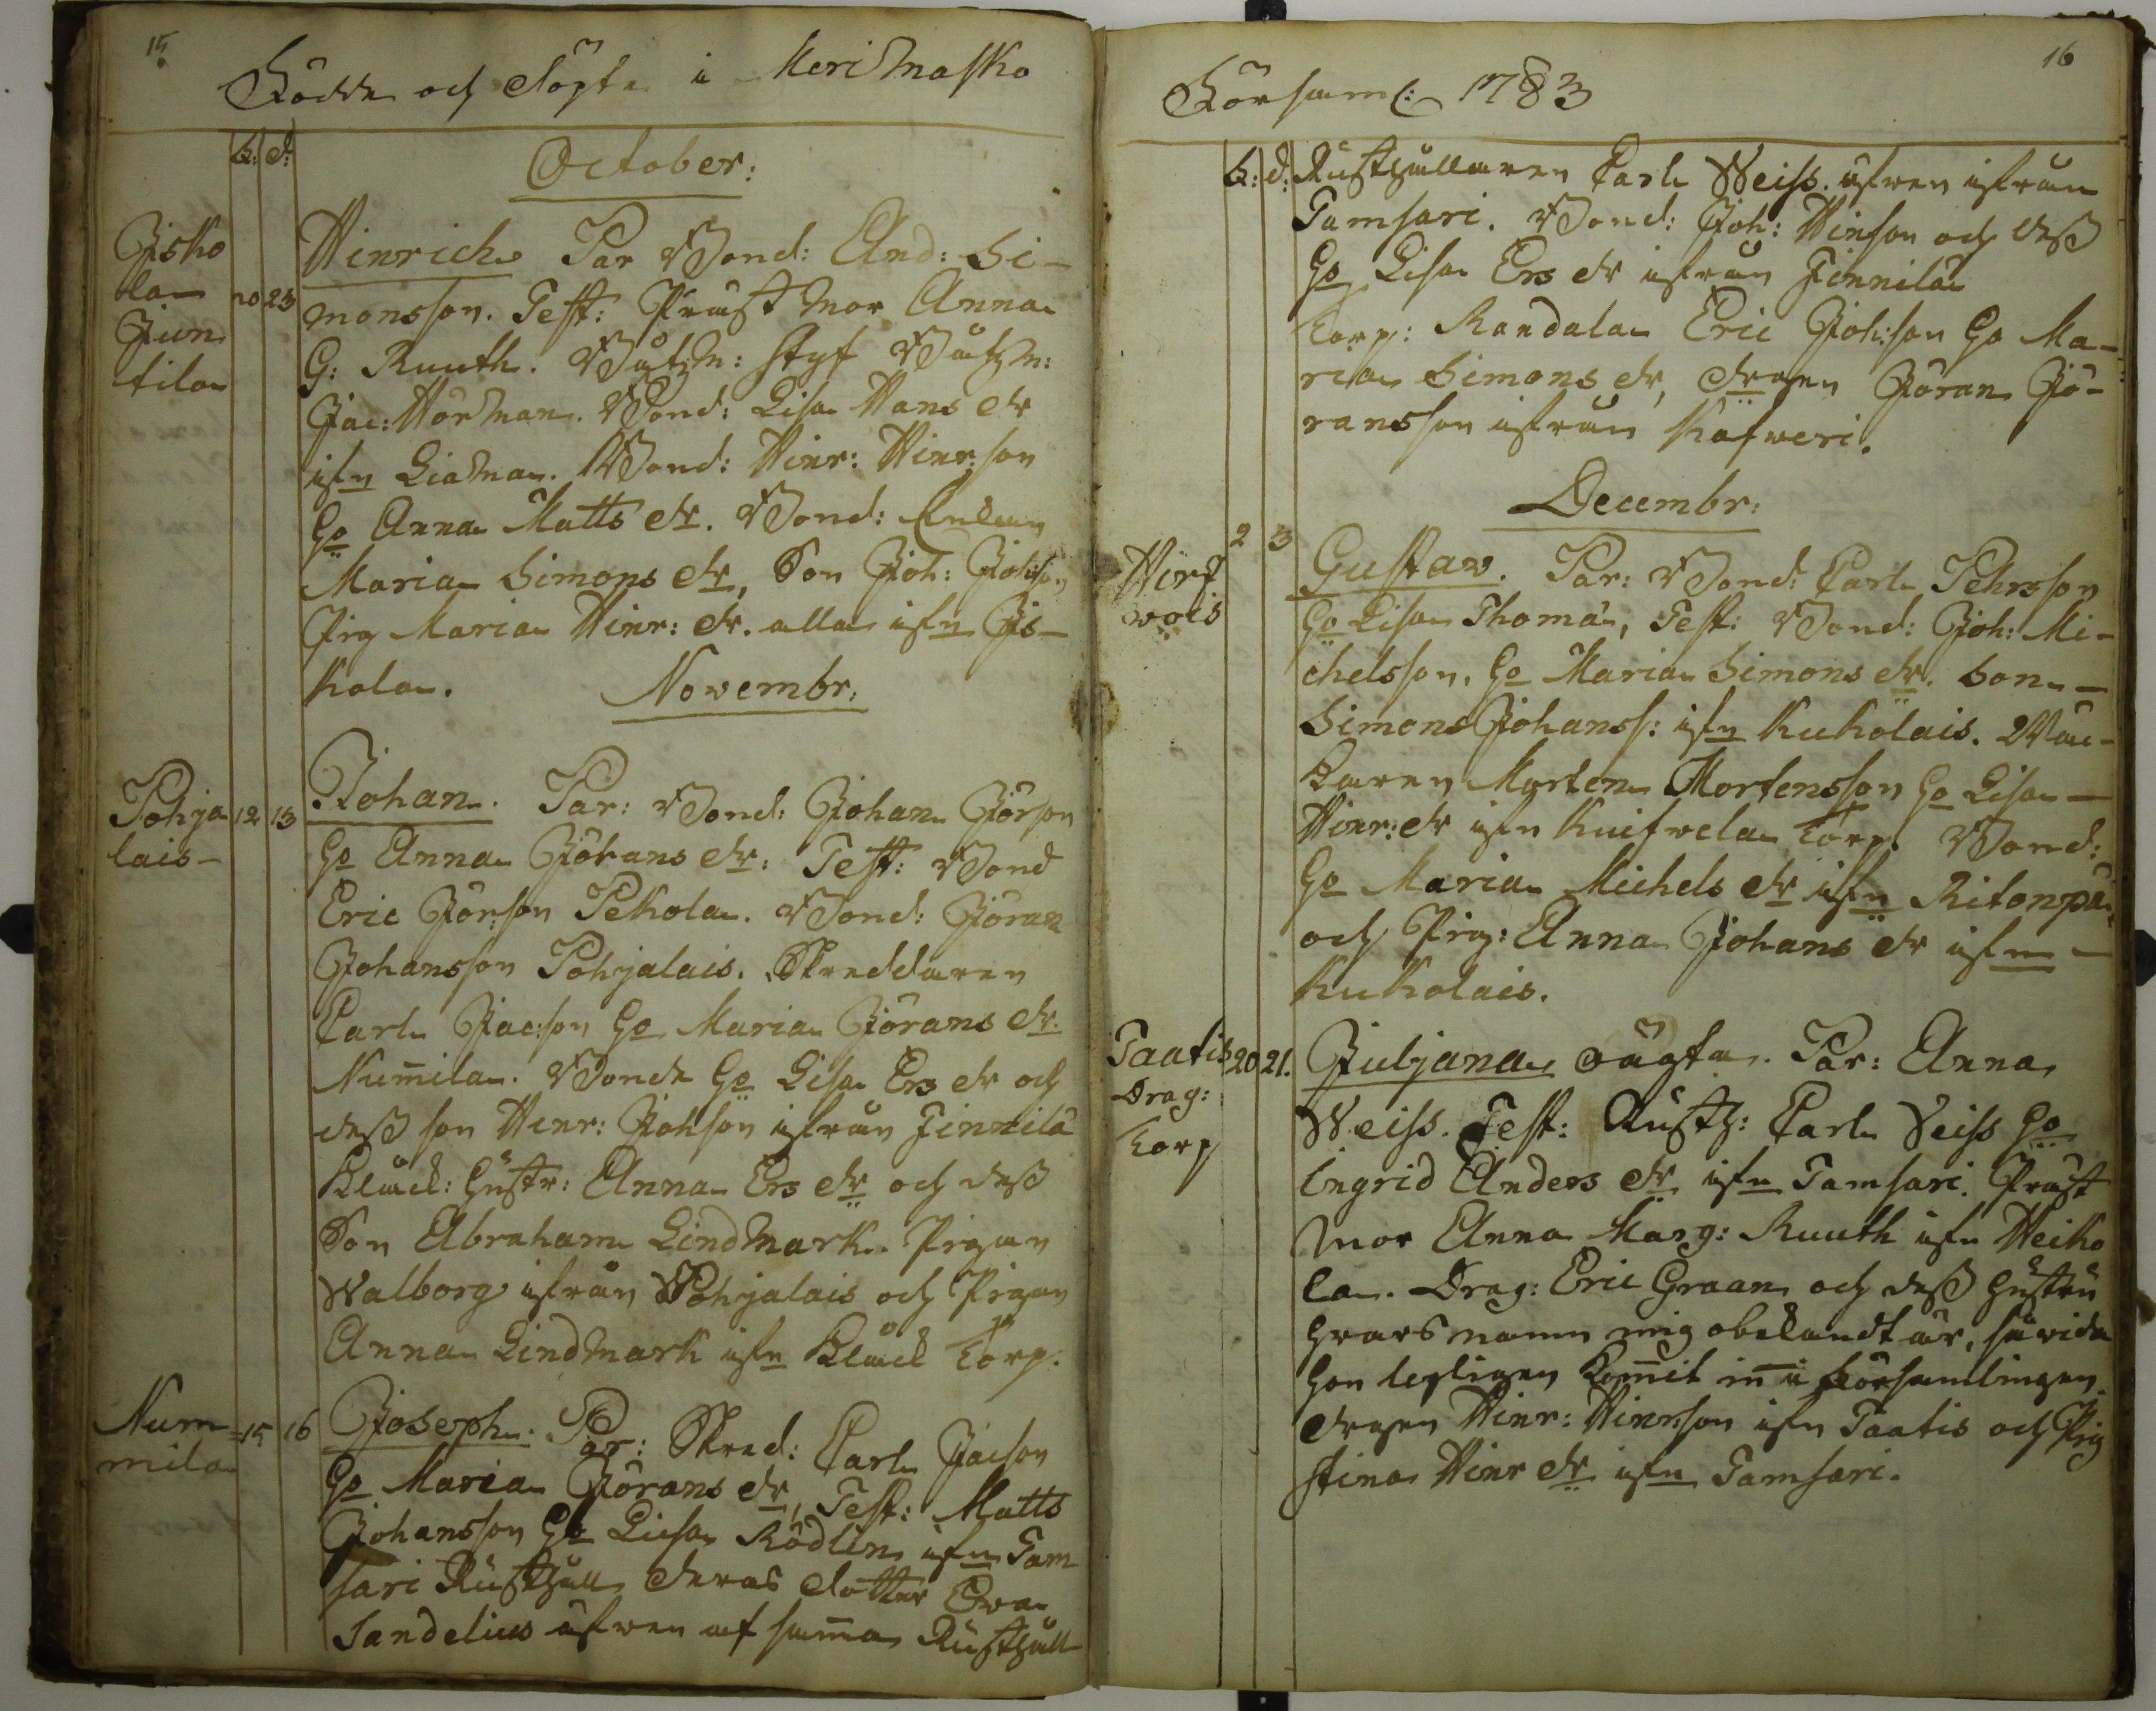 15
Födde och döpte i Merimasko
b: d:
October:
Jisko
la
Jun
tila
20 23
Hinrich. Par Bond: And: Si-
monsson. Test: Prust mor Anna
G: Ruuth. Båtzm: Båtzm:
Jac: Hörman. Bond: Lisa Hans dr
ifn Liamaa. Bond: Hinr: Hinr:son
ho Anna Matts dr. Bond: Enkan
Maria Simons dr, Son Joh: Joh:son
Pig Maria Hinr: dr. alla ifn Jis-
kola.
Novembr:
Pohja
lais-
12 13
Johan. Par: Bond: Johan Jörson
ho Anna Johans dr: Test: Bond
Eric Jörson Pekola. Bond: Jöran
Johansson Pohjalais. Skreddaren
Carl Jacson ho Maria Jörans dr.
Num̄ila. Bonde ho Lisa Ers dr och
dess son Hinr: Johson ifrån Finnilä
Klåck: hustr: Anna Ers dr och dess
Son Abraham Lindmark. Pigan
Walborg ifrån Pohjalais och Pigan
Anna Lindmark ifn Klåck Torp.
Num
mila
15 16
Joseph. Par: Skred: Carl Jacson
ho Maria Jörans dr, Test: Matts
Johansson ho Liisa Rödlin ifn Tam
sari Rusthåll deras dotter Eva
Sandelius äfwen af sam̄a Rusthåll
16
Församl: 1783
b: d:
Rusthållaren Carl Weiss äfwen ifrån
Tamsari. Bond: Joh: Hinson och dess
ho Lisa Ers dr ifrån Finnilä
Torp: Randala Eric Joh:son ho Ma-
ria Simons dr, drgen Jöran Jö-
ransson ifrån Kafweri.
Decembr:
Hirf
wois
2 3
Gustav. Par: Bond: Carl Pehrsson
ho Lisa Thomä, Test: Bond: Joh: Mi-
chelsson, ho Maria Simons dr. Son-
Simons Johanss: ifn Kukolais. Wäf-
karen Morten Mortensson ho Lisa-
Hinr: dr ifn Kuifwela Torp. Bond:
ho Maria Michels dr ifn Ritonpä
och Pig: Anna Johans dr ifn-
Kukolais.
Taatis
Drag:
Torp
20 21.
Juljana oägta. Par: Anna
Weiss. Test: Rusth: Carl Veiss ho
Ingrid Anders dr ifn Tamsari. Prust
mor Anna Marg: Ruuth ifn Heiko
la. Drag: Eric Graan och dess hustru
hvars namn mig obekandt är, såvida
hon nyligen kom̄it in i församlingen.
drgen Hinr: Hinrson ifn Taatis och Pig
Stina Hinr dr ifn Tamsari.